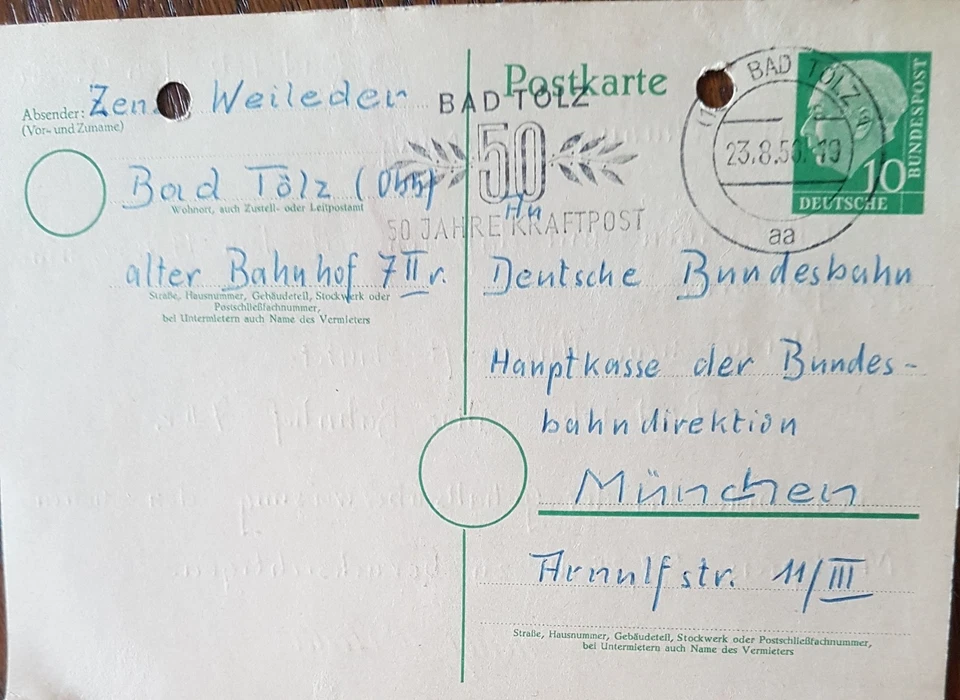 Absender: Zen Weileder
(Vor- und Zuname)
Bad Tölz (Obb)
Wohnort, auch Zustell- oder Leitpostamt
alter Bahnhof 7 II r.
Straße, Hausnummer, Gebäudeteil, Stockwerk oder
Postschließfachnummer,
bei Untermietern auch Name des Vermieters
Postkarte
BAD TÖLZ
50
50 JAHRE KRAFTPOST
BAD TÖLZ
23.8.5 19
aa
10
DEUTSCHE
BUNDESPOST
An
Deutsche Bundesbahn
Hauptkasse der Bundes-
bahndirektion
München
Arnulfstr. 11/III
Straße, Hausnummer, Gebäudeteil, Stockwerk oder Postschließfachnummer,
bei Untermietern auch Name des Vermieters